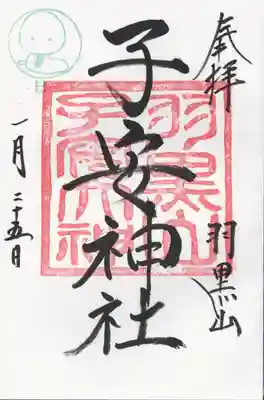 奉拝
羽黒山
子安神社
一月二十五日
羽黒山
子安神社